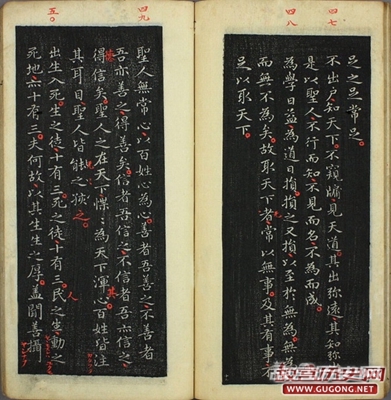 四七
足之足常足
不出戶知天下不窺牖見天道其出弥遠其知弥
是以聖人不行而知不見而名不為而成
四八
為學日益為道日損損之又損以至於無為無
而無不為矣故取天下者常以無事及其有事不
足以取天下
四九
聖人無常心以百姓心為心善者吾善之不善者
吾亦善之得善矣信者吾信之不信者吾亦信之
得信矣聖人之在天下惵惵為天下渾心百姓皆注
其耳目聖人皆之
五〇
出生入死生之徒十有三死之徒十有三民之生動之
死地亦十有三夫何故以其生生之厚蓋聞善攝
WWW.GUGONG.NET